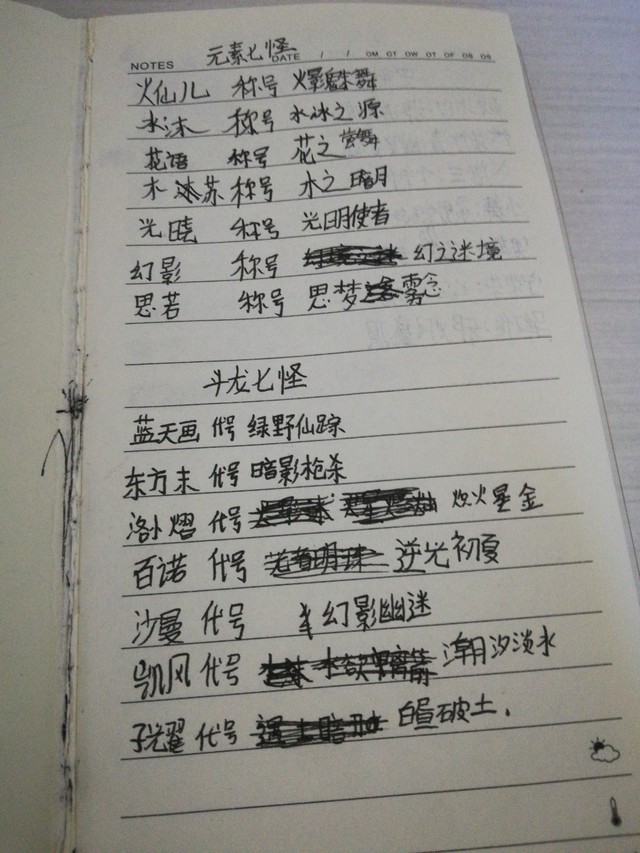 元素七怪
NOTES DATE / / OM OT OW OT OF OS OS
火仙儿 称号 火爆魅舞
水沐 称号 水冰之源
花语 称号 花之萤舞
木沐苏 称号 木之暗月
光晓 称号 光明使者
幻影 称号 幻之迷境
思若 称号 思梦雾念
斗龙七怪
蓝天画 代号 绿野仙踪
东方末 代号 暗影枪杀
洛小熠 代号 炽火星金
百诺 代号 逆光初夏
沙曼 代号 幻影幽迷
凯风 代号 潮汐淡水
子耀 代号 破土.